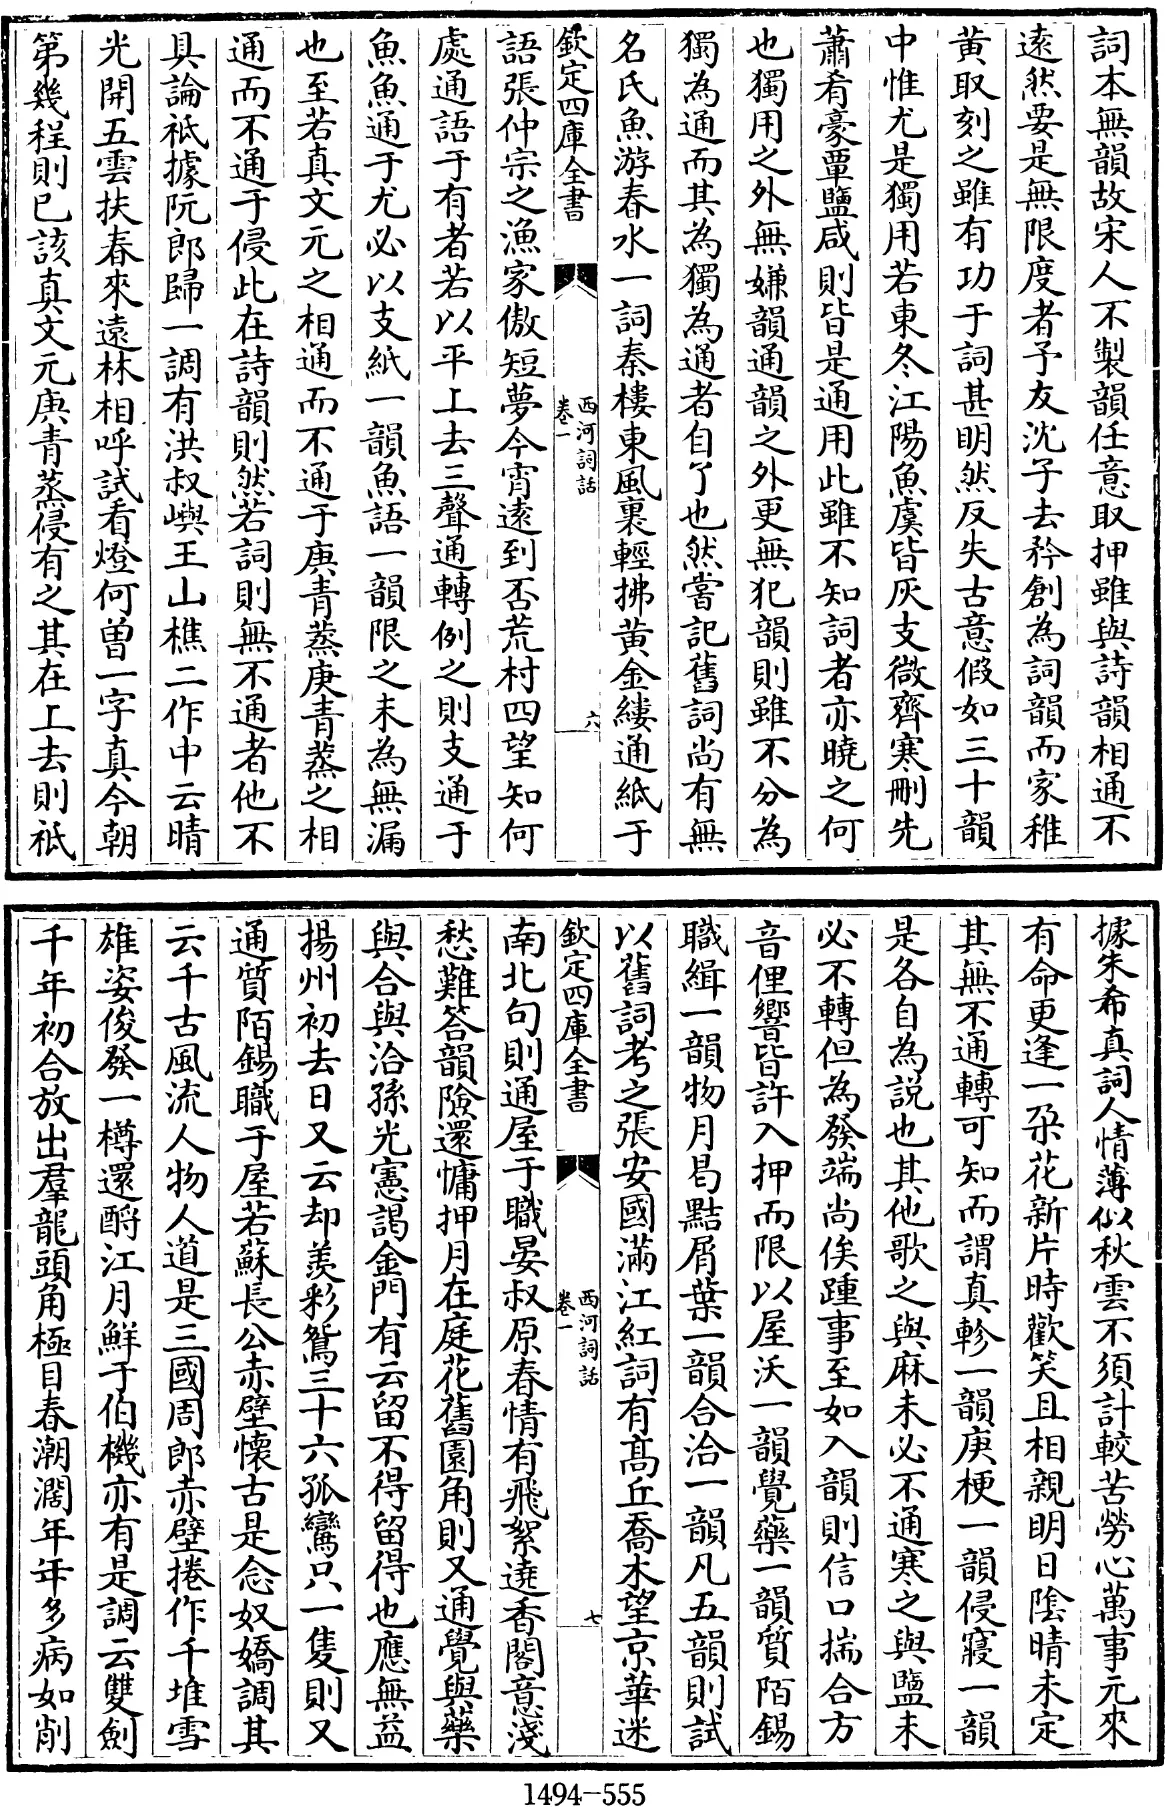 詞本無韻故宋人不製韻任意取押雖與詩韻相通不
逺然要是無限度者予友沈子去矜創為詞韻而家稚
黄取刻之雖有功于詞甚眀然反失古意假如三十韻
中惟尤是獨用若東冬江陽魚虞皆灰支微齊寒刪先
蕭肴豪覃鹽咸則皆是通用此雖不知詞者亦曉之何
也獨用之外無嫌韻通韻之外更無犯韻則雖不分為
獨為通而其為獨為通者自了也然嘗記舊詞尚有無
名氏魚游春水一詞秦樓東風裏輕拂黄金縷通紙于
欽定四庫全書
西河詞話
卷一
六
語張仲宗之漁家傲短夢今宵逺到否荒村四望知何
處通語于有者若以平上去三聲通轉例之則支通于
魚魚通于尤必以支紙一韻魚語一韻限之未為無漏
也至若真文元之相通而不通于庚青蒸庚青蒸之相
通而不通于侵此在詩韻則然若詞則無不通者他不
具論祗據阮郎歸一調有洪叔嶼王山樵二作中云晴
光開五雲扶春來逺林相呼試看燈何曽一字真今朝
第幾程則已該真文元庚青蒸侵有之其在上去則祗
據朱希真詞人情薄似秋雲不須計較苦勞心萬事元來
有命更逢一朶花新片時歡笑且相親眀日陰晴未定
其無不通轉可知而謂真軫一韻庚梗一韻侵寢一韻
是各自為説也其他歌之與麻未必不通寒之與鹽未
必不轉但為發端尚俟踵事至如入韻則信口揣合方
音俚響皆許入押而限以屋沃一韻覺藥一韻質陌錫
職緝一韻物月曷黠屑葉一韻合洽一韻凡五韻則試
以舊詞考之張安國滿江紅詞有髙丘喬木望京華迷
欽定四庫全書
西河詞話
卷一
七
南北句則通屋于職晏叔原春情有飛絮遶香閣意淺
愁難答韻險還慵押月在庭花舊園角則又通覺與藥
與合與洽孫光憲謁金門有云留不得留得也應無益
揚州初去日又云却羡彩鴛三十六孤鸞只一隻則又
通質陌錫職于屋若蘇長公赤壁懐古是念奴嬌調其
云千古風流人物人道是三國周郎赤壁捲作千堆雪
雄姿俊發一樽還酹江月鮮于伯機亦有是調云雙劍
千年初合放出羣龍頭角極目春潮濶年年多病如削
1494-555